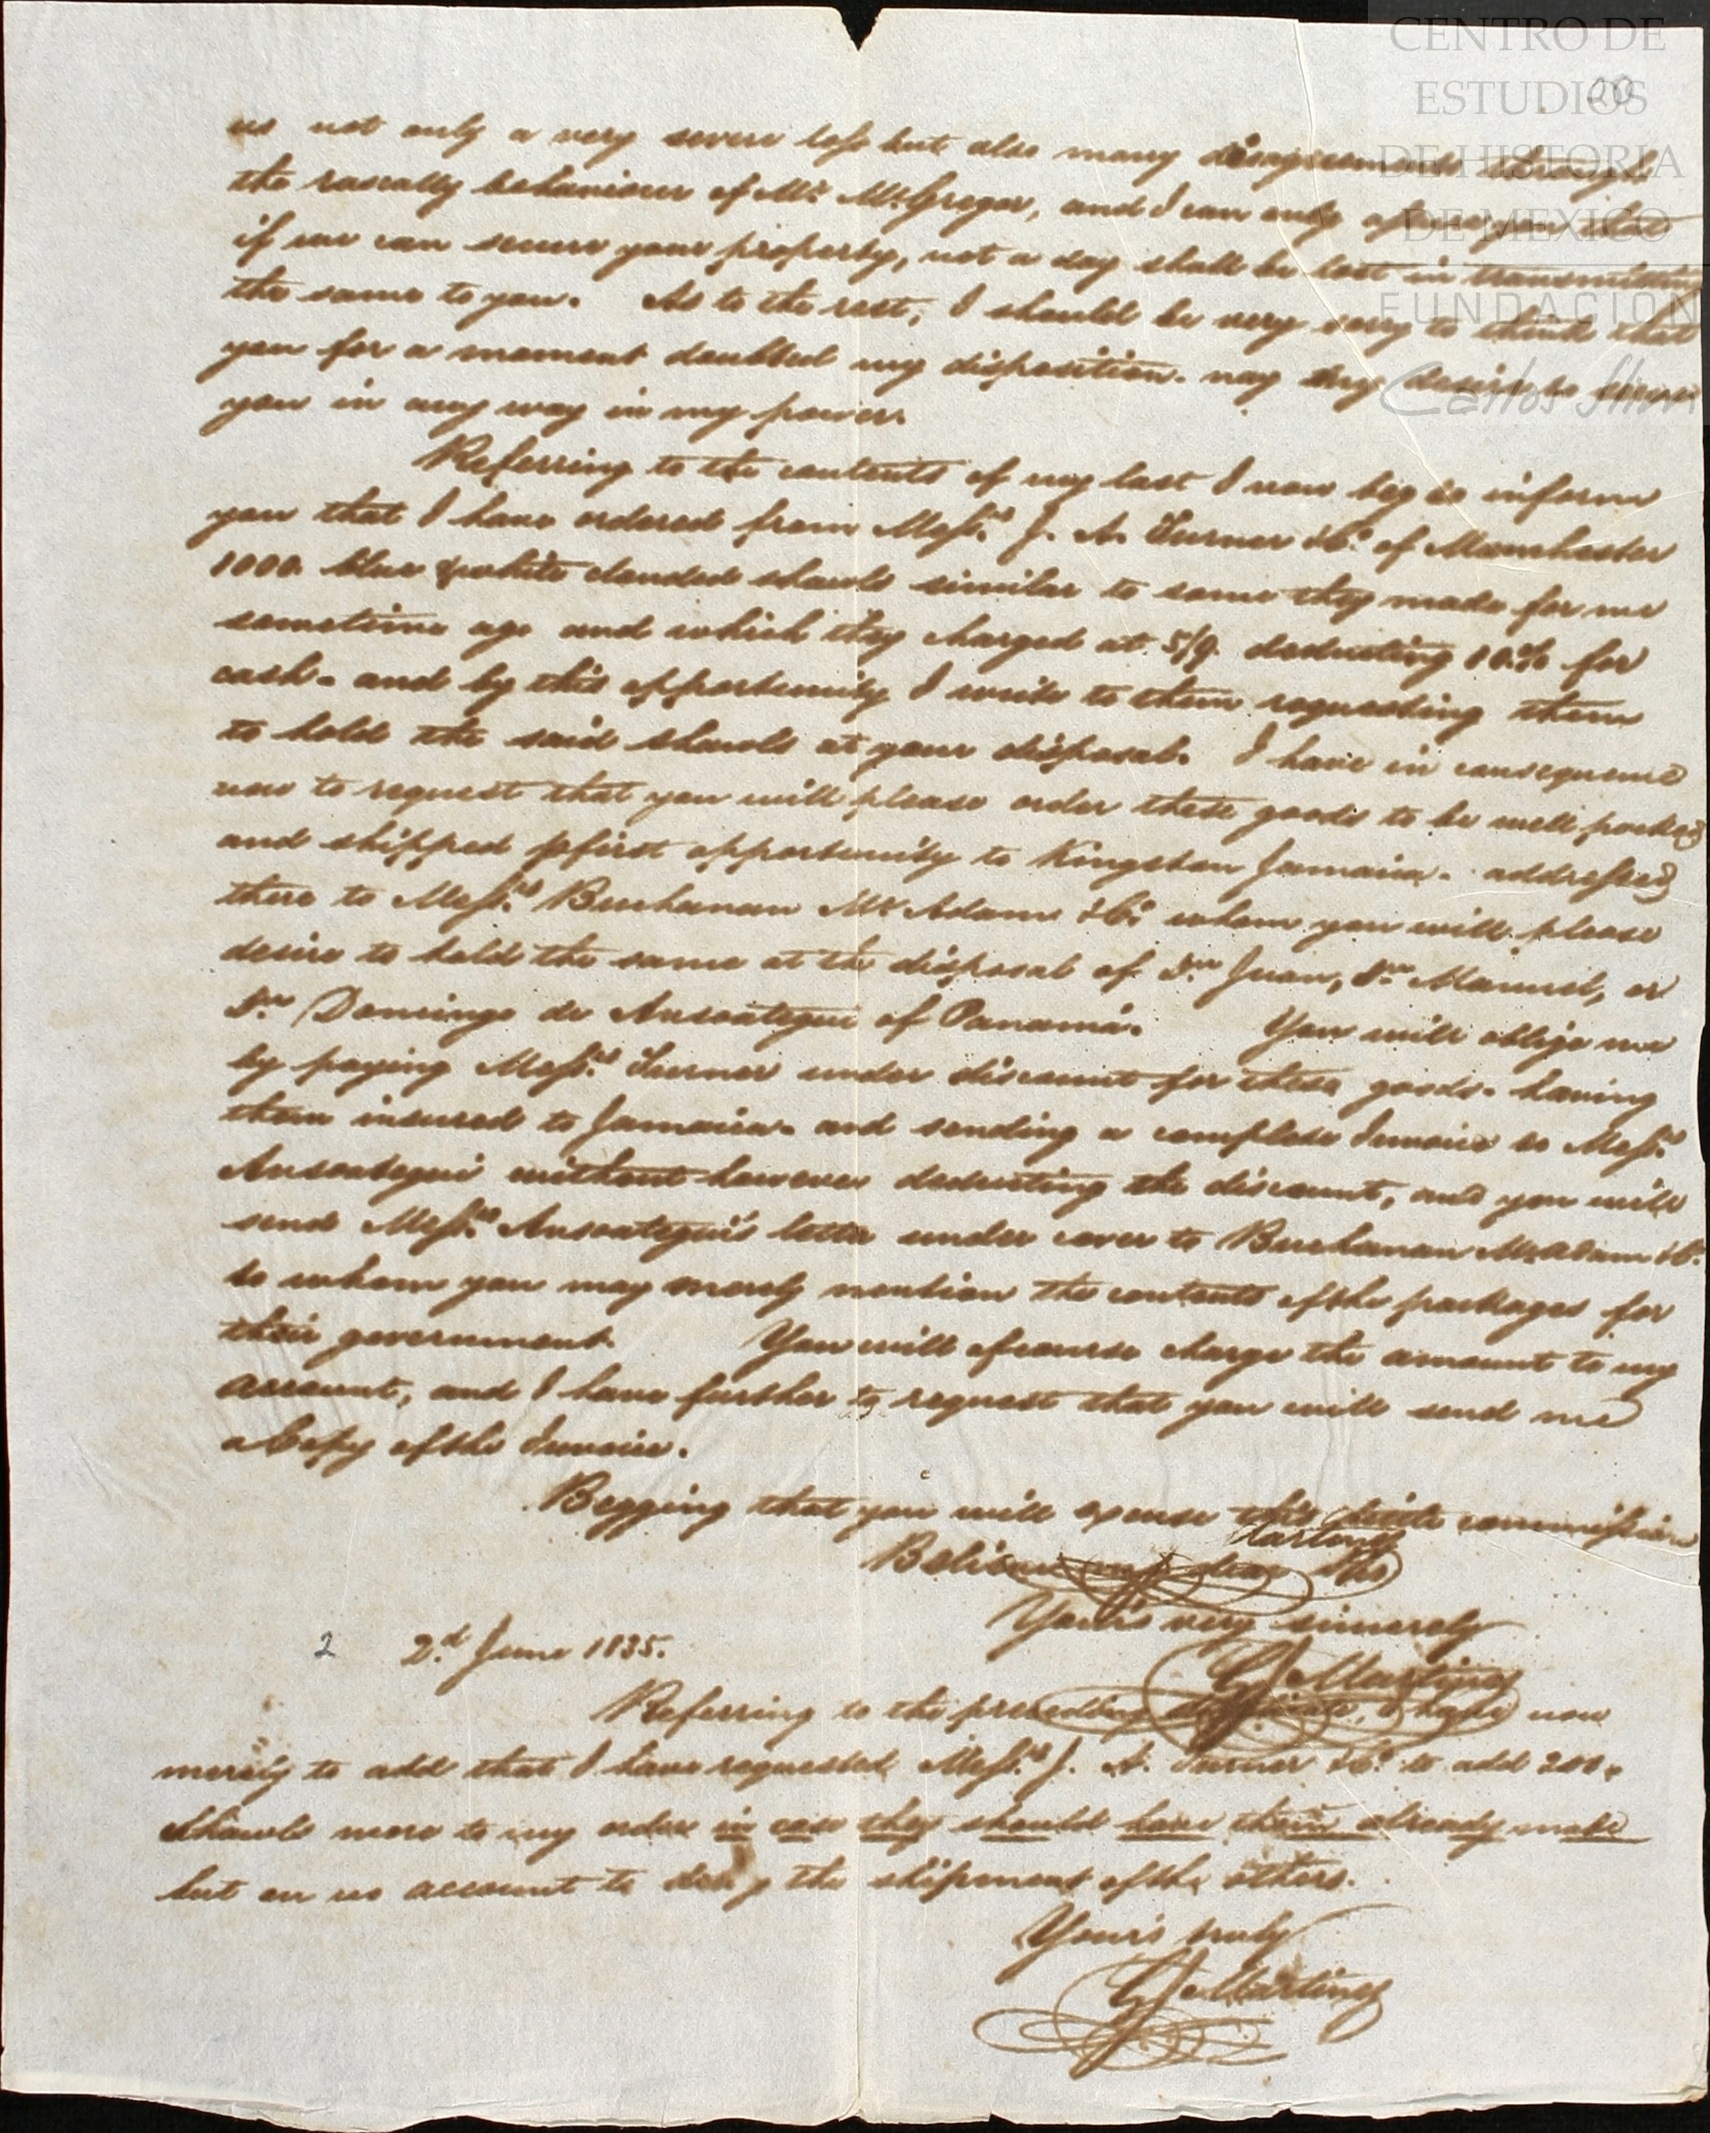 CENTRO DE
ESTUDIOS
DE HISTORIA
DE MEXICO
FUNDACION
Carlos Slim
20
us not only a very severe loss but also many disagreements through
the rascally behaviour of Mr. McGregor, and I can only assure you that
if we can secure your property, not a day shall be lost in transmitting
the same to you. As to the rest, I should be very sorry to think that
you for a moment doubted my disposition. nay my desire to serve
you in any way in my power.
Referring to the contents of my last I now beg to inform
you that I have ordered from Messrs. J. A. Turner & Co. of Manchester
1000. blue & white clouded shawls similar to some they made for me
sometime ago and which they charged at 5/9. deducting 10.% for
cash. and by this opportunity I write to them requesting them
to hold the said shawls at your disposal. I have in consequence
now to request that you will please order these goods to be well packed
and shipped p first opportunity to Kingston Jamaica. addressed
there to Messrs. Buchanan McAdam & Co. whom you will please
desire to hold the same at the disposal of Dn. Juan, Dn. Manuel, or
Dn. Domingo de Ansoategui of Panamá. You will oblige me
by paying Messrs. Turner under discount for these goods. having
them insured to Jamaica. and sending a complete Invoice to Messrs.
Ansoategui without however deducting the discount, and you will
send Messrs. Ansoategui's letter under cover to Buchanan McAdam & Co.
to whom you may merely mention the contents of the packages for
their government. You will of course charge the amount to my
account, and I have further to request that you will send me
a Copy of the Invoice.
Begging that you will excuse this little commission
Believe my dear Sirs
Your's very sincerely
Martinez
2 2.d June 1835.
Referring to the preceding duplicate, I have now
merely to add that I have requested Messrs. J. A. Turner & Co. to add 200.
Shawls more to my order in case they should have them already made
but on no account to delay the shipment of the others.
Your's truly
Martinez